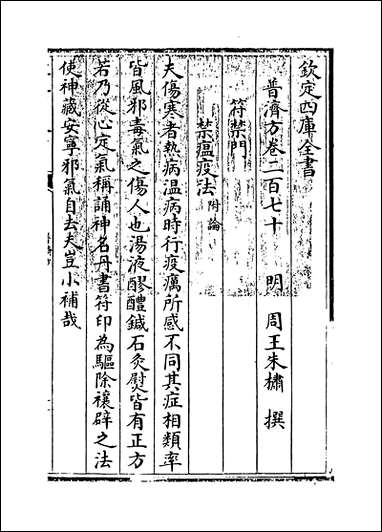 欽定四庫全書
普濟方卷二百七十 明 周王朱橚 撰
符禁門
禁瘟疫法附論
夫傷寒者熱病温病時行疫癘所感不同其症相類率
皆風邪毒氣之傷人也湯液醪醴鍼石灸熨皆有正方
若乃從心定氣稱誦神名丹書符印為驅除禳辟之法
使神藏安寧邪氣自去夫豈小補哉